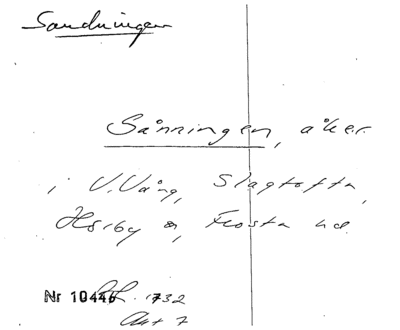 Sandningen
Sånningen, åker
i V. Vång, Slagtofta,
Hörby sn, Frosta hd.
Nr 10446 1732
Akt 7